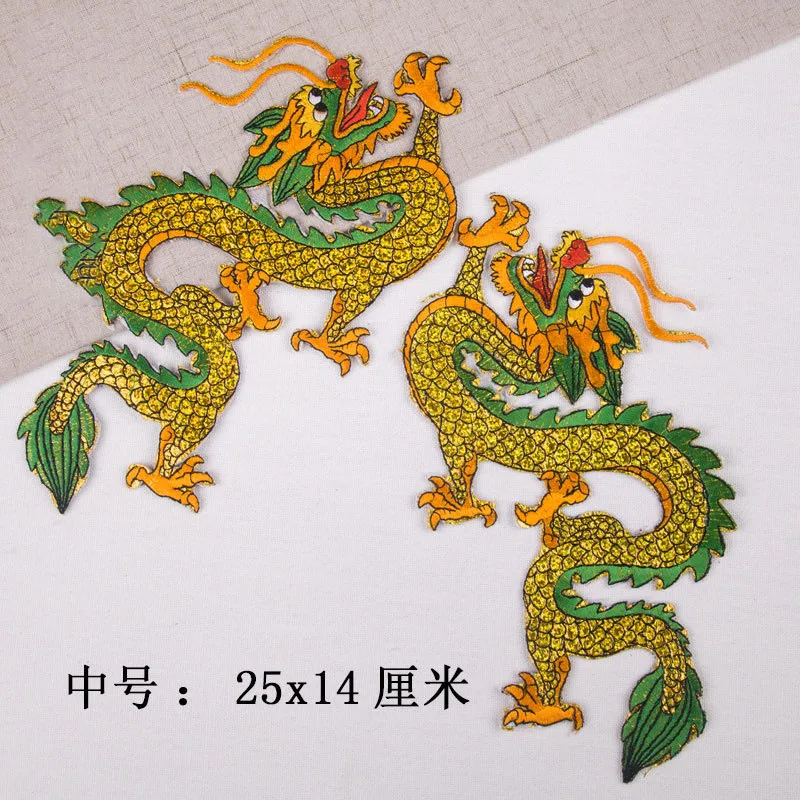 中号： 25x14 厘米